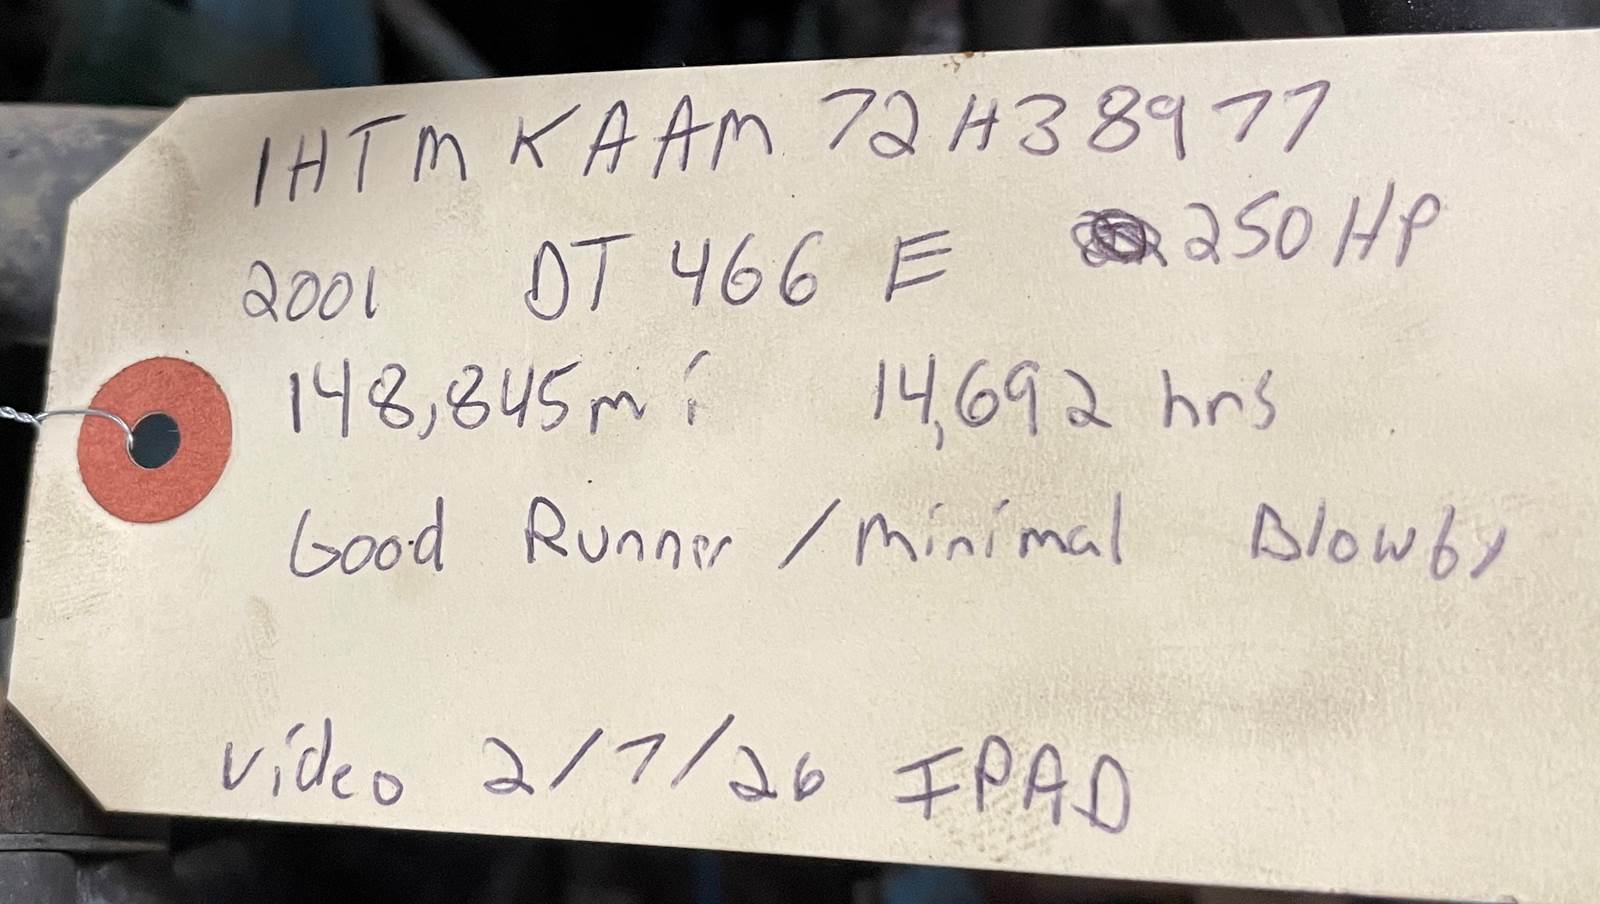 1HTMKAAM72H38977
2001 DT 466 E 250 HP
148,845 mi 14,692 hrs
Good Runner / Minimal Blowby
Video 2/7/26 IPAD